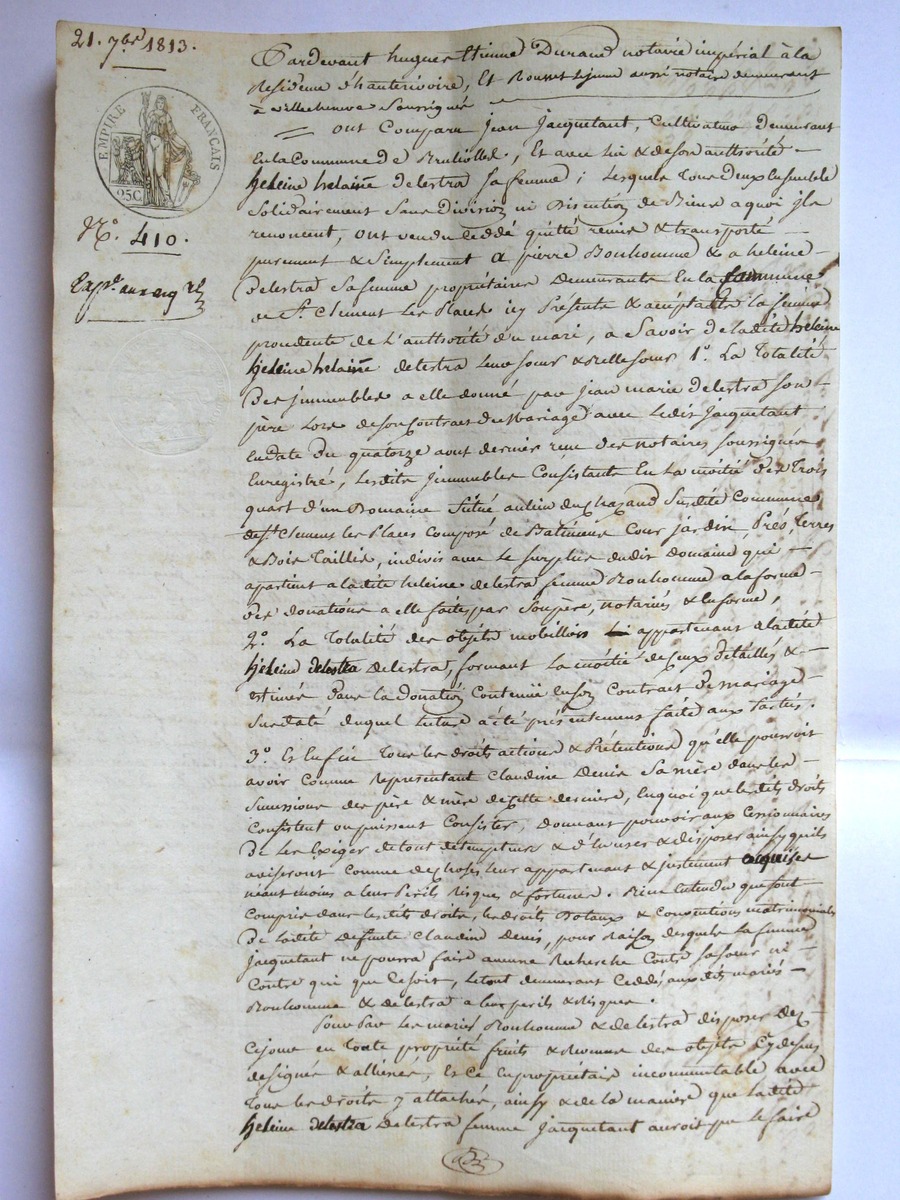 21. 7bre 1813.
EMPIRE FRANÇAIS
25C.
N.° 410.
Pardevant hugues Etienne Durand notaire impérial à la
Residence d'hauterivoire, Et Bonnet Lejeune aussi notaire demeurant
à villechenève Soussignés
ont Comparu Jean Jacquetant, Cultivateur Demeurant
En la Commune de Brullolles, Et avec lui & de son authorité
heleine helaine Delestra Sa femme; Lesquels Tous deux Ensemble
Solidairement Sans Division ni Discution de Biens a quoi ils
renoncent, ont vendu ceddé quitté remis & transporté
purement & Simplement a pierre Bonhomme & a heleine
Delestra Sa femme propriétaires Demeurants En la Commune
de St. Clement Les Places icy Présents & acceptants la femme
procedente de L'authorité du mari, a Savoir de ladite heleine
heleine helaine delestra leur soeur & Belle soeur 1°. La Totalité
Des immeubles a elle donné par jean marie delestra son
père Lors de son Contrat de Mariage avec Ledit Jacquetant
En date du quatorze aout dernier recu des notaires soussignés
Enregistré, Lesdits Immeubles Consistants En La moitié des Trois
quart d'un Domaine Situé au lieu du Chazaud Susdite Commune
de St. Clement les Places Composé de Batiments Cour Jardin, Prés, Terres
& Bois Taillis, indivis avec le surplus dudit domaine qui
apartient a ladite heleine delestra femme Bonhomme a la forme
Des donations a elle faites par Son père, notariés & En forme,
2°. La Totalité des objets mobilliers appartenant a ladite
heleine delestra Delestra, formant La moitié de Ceux détaillés &
Estimés dans la donation Contenüe En son Contrat de mariage
Susdaté duquel lecture a été présentement faite aux Parties.
3°. Et Enfin Tous les droits actions & Prétentions qu'elle pourroit
avoir Comme représentant Claudine Denis Sa mère dans les
Successions des père & mère de Cette derniere, En quoi que lesdits droits
Consistent ou puissent Consister, Donnant pouvoir aux Cessionnaires
De Les Exiger de tout détempteurs & d'En user & disposer ainsy quils
aviseront Comme de Choses leur appartenant & justement acquises
néant moins a leur Périls Risques & fortune. Bien Entendu que sont
Compris dans lesdits droits, les droits Dotaux & Conventions matrimoniales
De ladite Defunte Claudine Denis, pour Raison desquels La femme
Jacquetant ne pourra faire aucune Recherche Contre Sa Soeur ni
Contre qui que Ce soit, le tout demeurant Ceddé aux dits mariés
Bonhomme & delestra a leur perils & risques.
Pour Par Les mariés Bonhomme & delestra disposer dez
Ce jour en Toute propriété fruits & Revenus des objets Cy dessus
désignés & aliénés, Et Ce En propriétaire incommutable avec
Tous les droits y attachés, ainsy & de la maniere que ladite
heleine delestra Delestra femme Jacquetant auroit pu le faire